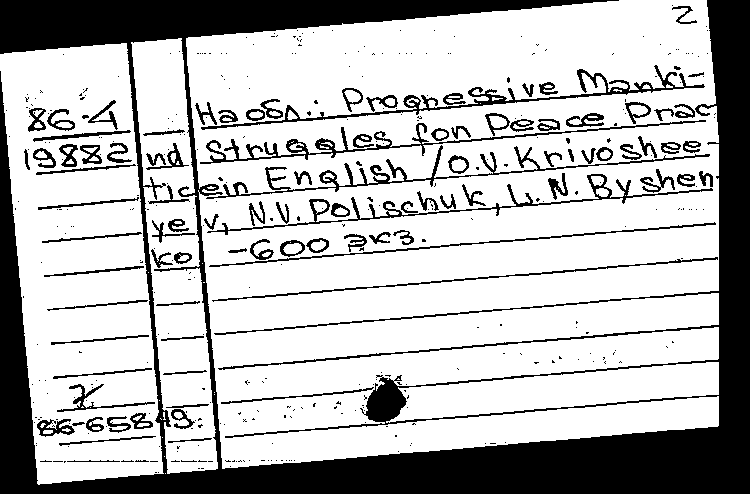 2
86-4 На обл.: Progressive Manki-
19882 nd Struggles for Peace. Prac
ticein English / O.V. Krivoshee-
ye v, N.V. Polischuk, L. N. Byshen-
ko -600 экз.
86-65849.